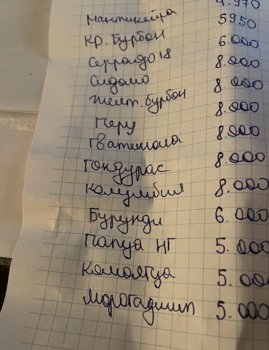 4.970
Мантикейра 5950
Кр. Бурбон 6.000
Серрадо 18 8.000
Сидамо 8.000
Желт. бурбон 8.000
Перу 8.000
Гватемала 8.000
Гондурас 8.000
Колумбия 8.000
Бурунди 6.000
Папуа НГ 5.000
5.000
5.000